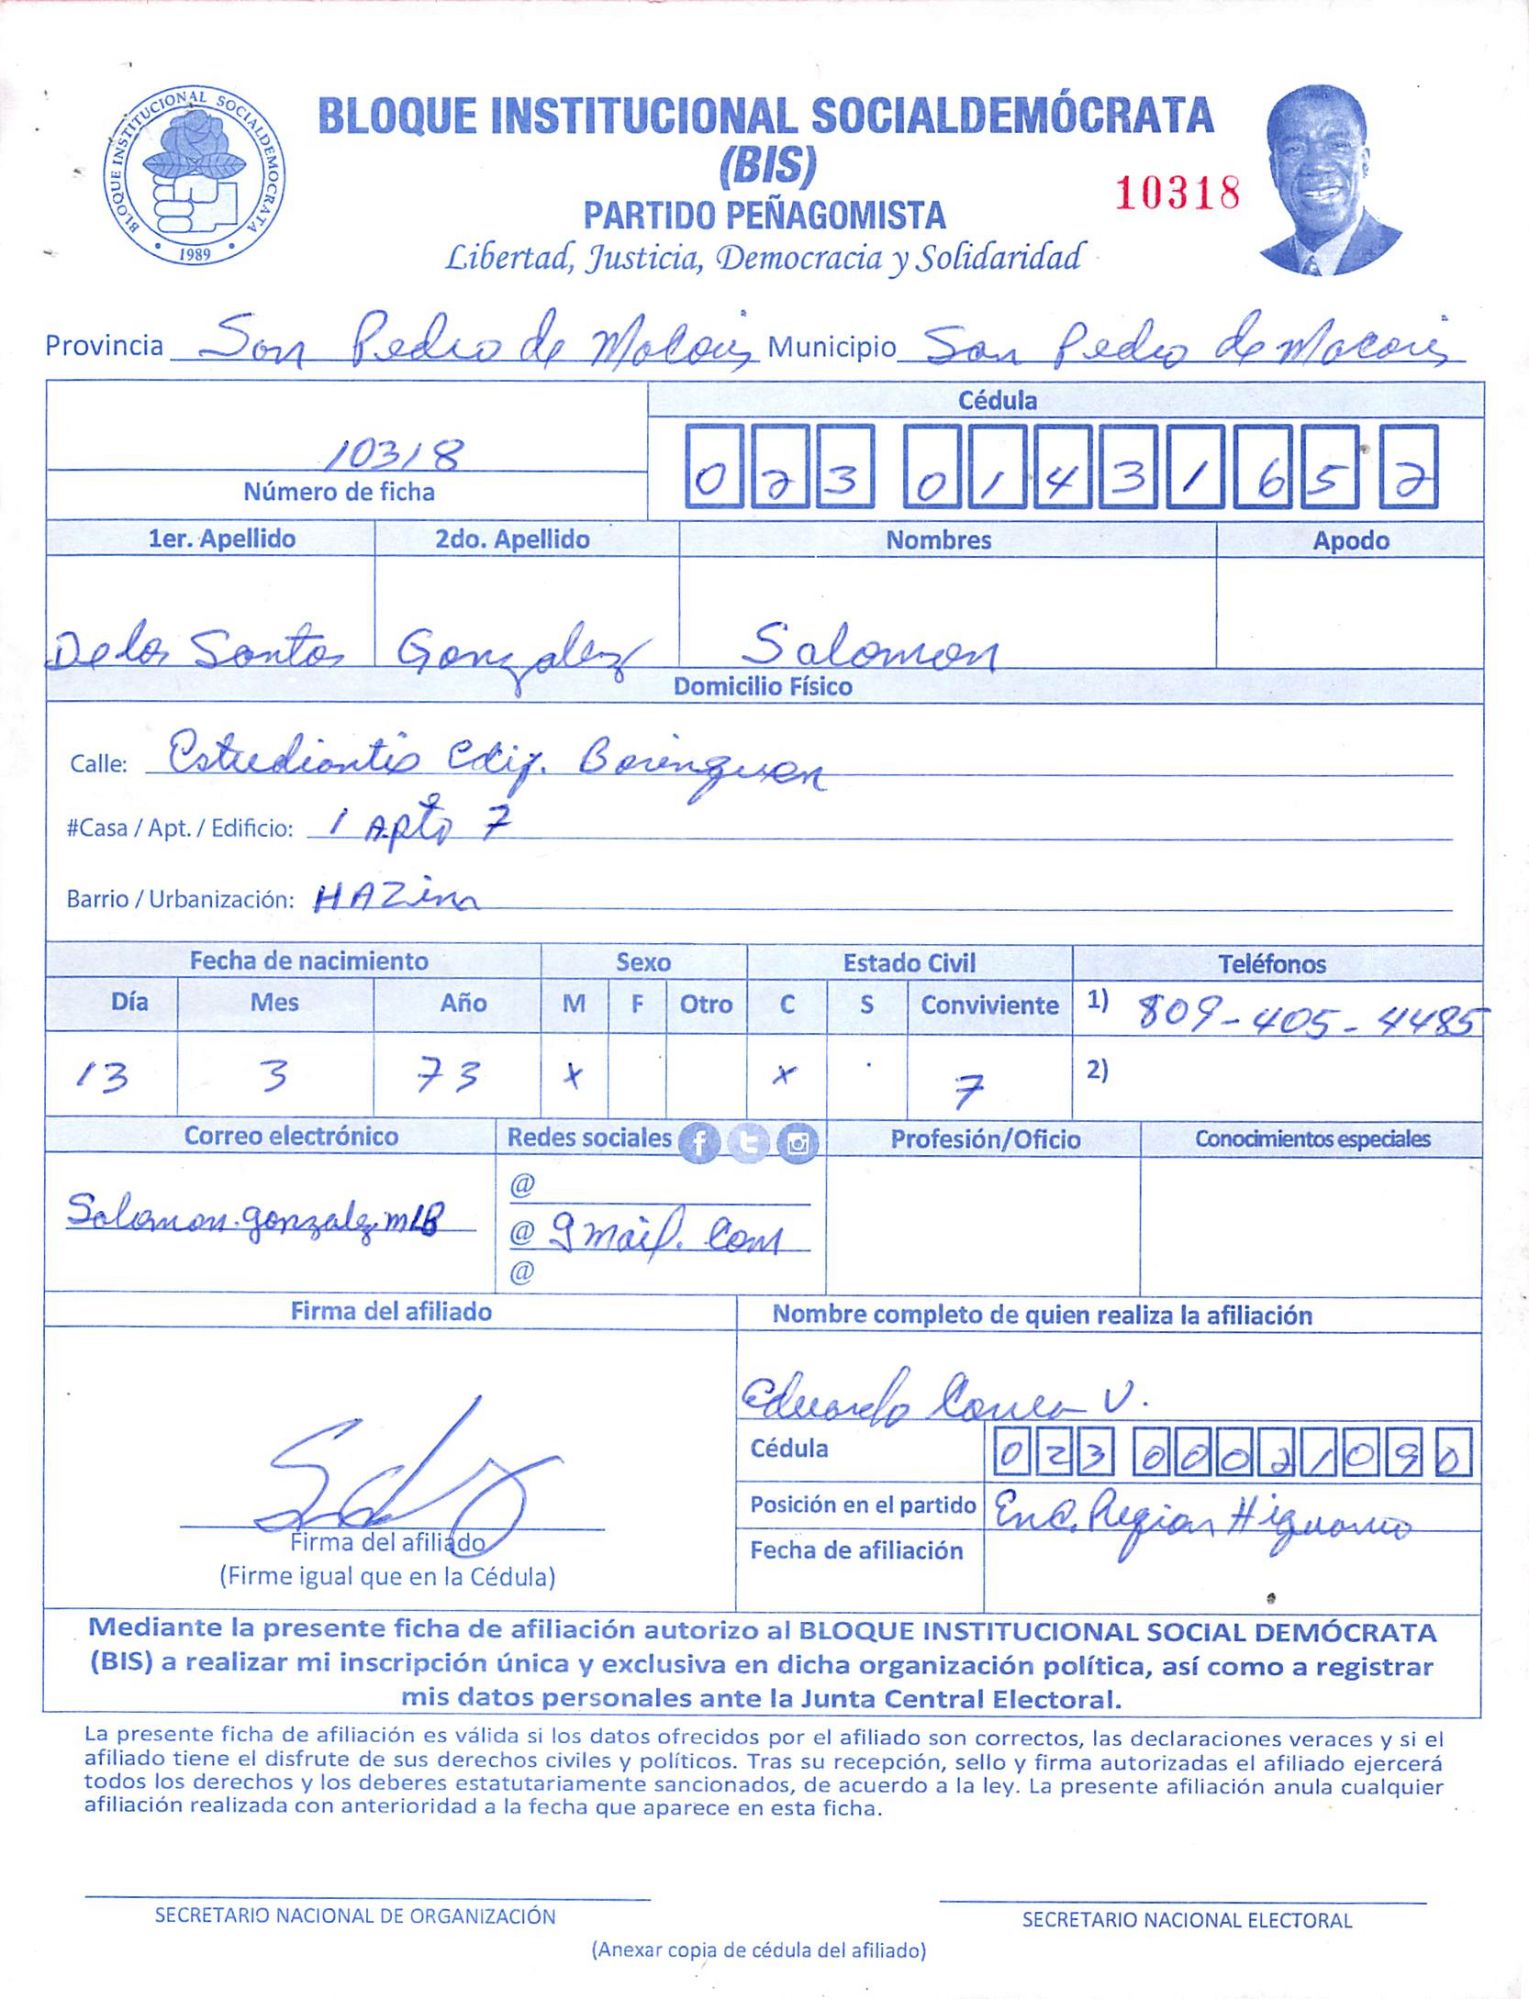 BLOQUE INSTITUCIONAL SOCIALDEMOCRATA
1989
BLOQUE INSTITUCIONAL SOCIALDEMÓCRATA
(BIS)
PARTIDO PEÑAGOMISTA
10318
Libertad, Justicia, Democracia y Solidaridad
Provincia San Pedro de Macoris Municipio San Pedro de Macoris
Cédula
10318
023 0143165 2
Número de ficha
1er. Apellido 2do. Apellido Nombres Apodo
De los Santos Gonzalez Salomon
Domicilio Físico
Calle: Estudiantis Edif. Borinquen
#Casa / Apt. / Edificio: 1 Apto 7
Barrio / Urbanización: HAZim
Fecha de nacimiento Sexo Estado Civil Teléfonos
Día Mes Año M F Otro C S Conviviente 1) 809-405-4485
13 3 73 x x 7 2)
Correo electrónico Redes sociales Profesión/Oficio Conocimientos especiales
@
Salomon.gonzalez.mLB @ gmail.com
@
Firma del afiliado Nombre completo de quien realiza la afiliación
Eduardo Correa V.
Cédula 023 0002109 0
Posición en el partido Enc. Region Higuamo
Firma del afiliado
Fecha de afiliación
(Firme igual que en la Cédula)
Mediante la presente ficha de afiliación autorizo al BLOQUE INSTITUCIONAL SOCIAL DEMÓCRATA
(BIS) a realizar mi inscripción única y exclusiva en dicha organización política, así como a registrar
mis datos personales ante la Junta Central Electoral.
La presente ficha de afiliación es válida si los datos ofrecidos por el afiliado son correctos, las declaraciones veraces y si el
afiliado tiene el disfrute de sus derechos civiles y políticos. Tras su recepción, sello y firma autorizadas el afiliado ejercerá
todos los derechos y los deberes estatutariamente sancionados, de acuerdo a la ley. La presente afiliación anula cualquier
afiliación realizada con anterioridad a la fecha que aparece en esta ficha.
SECRETARIO NACIONAL DE ORGANIZACIÓN SECRETARIO NACIONAL ELECTORAL
(Anexar copia de cédula del afiliado)